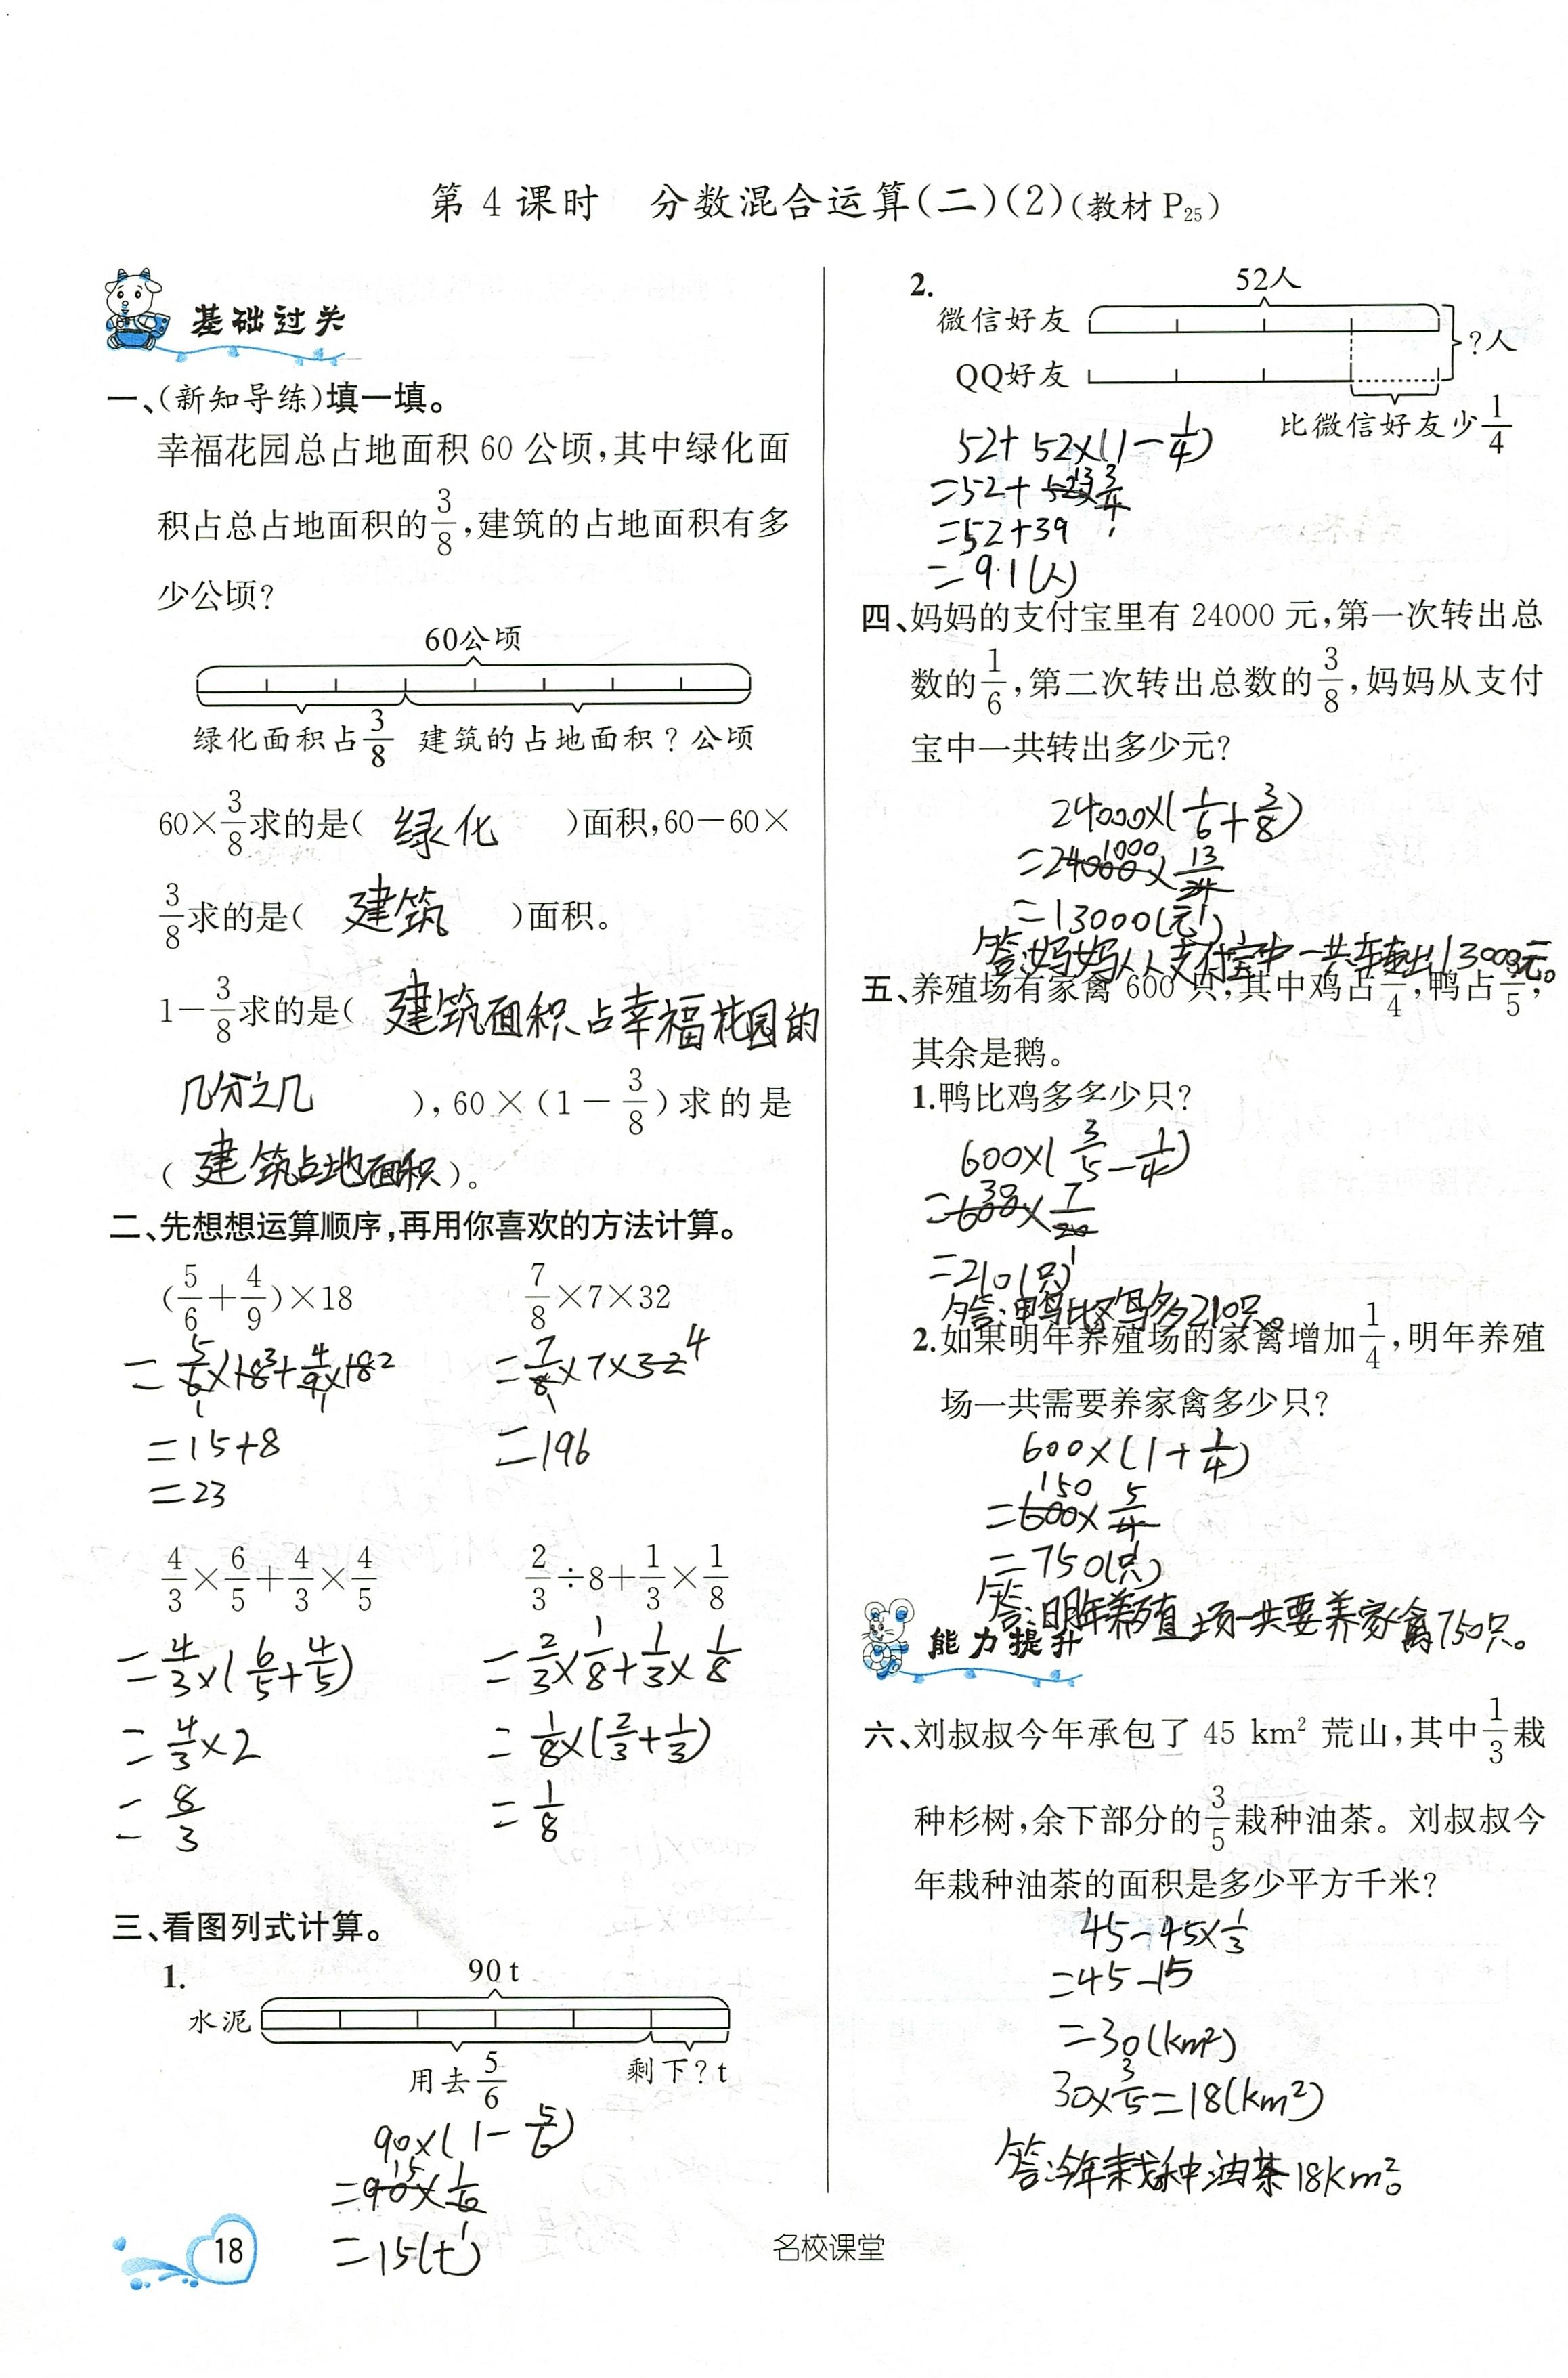 第4课时 分数混合运算(二)(2)(教材P25)
基础过关
一、(新知导练)填一填。
幸福花园总占地面积60公顷,其中绿化面
积占总占地面积的3/8,建筑的占地面积有多
少公顷?
60公顷
绿化面积占3/8 建筑的占地面积?公顷
60×3/8求的是( 绿化 )面积,60-60×
3/8求的是( 建筑 )面积。
1-3/8求的是( 建筑面积占幸福花园的
几分之几 ),60×(1-3/8)求的是
( 建筑占地面积 )。
二、先想想运算顺序,再用你喜欢的方法计算。
(5/6+4/9)×18 7/8×7×32
=5/6×18+4/9×18 =7/8×7×32
3 2 4
1 1 1
=15+8 =196
=23
4/3×6/5+4/3×4/5 2/3÷8+1/3×1/8
=4/3×(6/5+4/5) =2/3×1/8+1/3×1/8
=4/3×2 =1/8×(2/3+1/3)
=8/3 =1/8
三、看图列式计算。
1.
90 t
水泥
用去5/6 剩下?t
90×(1-5/6)
15
=90×1/6
1
=15(t)
18
2.
52人
微信好友
?人
QQ好友
比微信好友少1/4
52+52×(1-1/4)
13
=52+52×3/4
1
=52+39
=91(人)
四、妈妈的支付宝里有24000元,第一次转出总
数的1/6,第二次转出总数的3/8,妈妈从支付
宝中一共转出多少元?
24000×(1/6+3/8)
1000
=24000×13/24
1
=13000(元)
答:妈妈从支付宝中一共转出13000元。
五、养殖场有家禽600只,其中鸡占1/4,鸭占3/5,
其余是鹅。
1.鸭比鸡多多少只?
600×(3/5-1/4)
30
=600×7/20
1
=210(只)
答:鸭比鸡多210只。
2.如果明年养殖场的家禽增加1/4,明年养殖
场一共需要养家禽多少只?
600×(1+1/4)
150
=600×5/4
1
=750(只)
答:明年养殖场一共要养家禽750只。
能力提升
六、刘叔叔今年承包了45 km²荒山,其中1/3栽
种杉树,余下部分的3/5栽种油茶。刘叔叔今
年栽种油茶的面积是多少平方千米?
45-45×1/3
=45-15
=30(km²)
30×3/5=18(km²)
答:今年栽种油茶18km²。
名校课堂